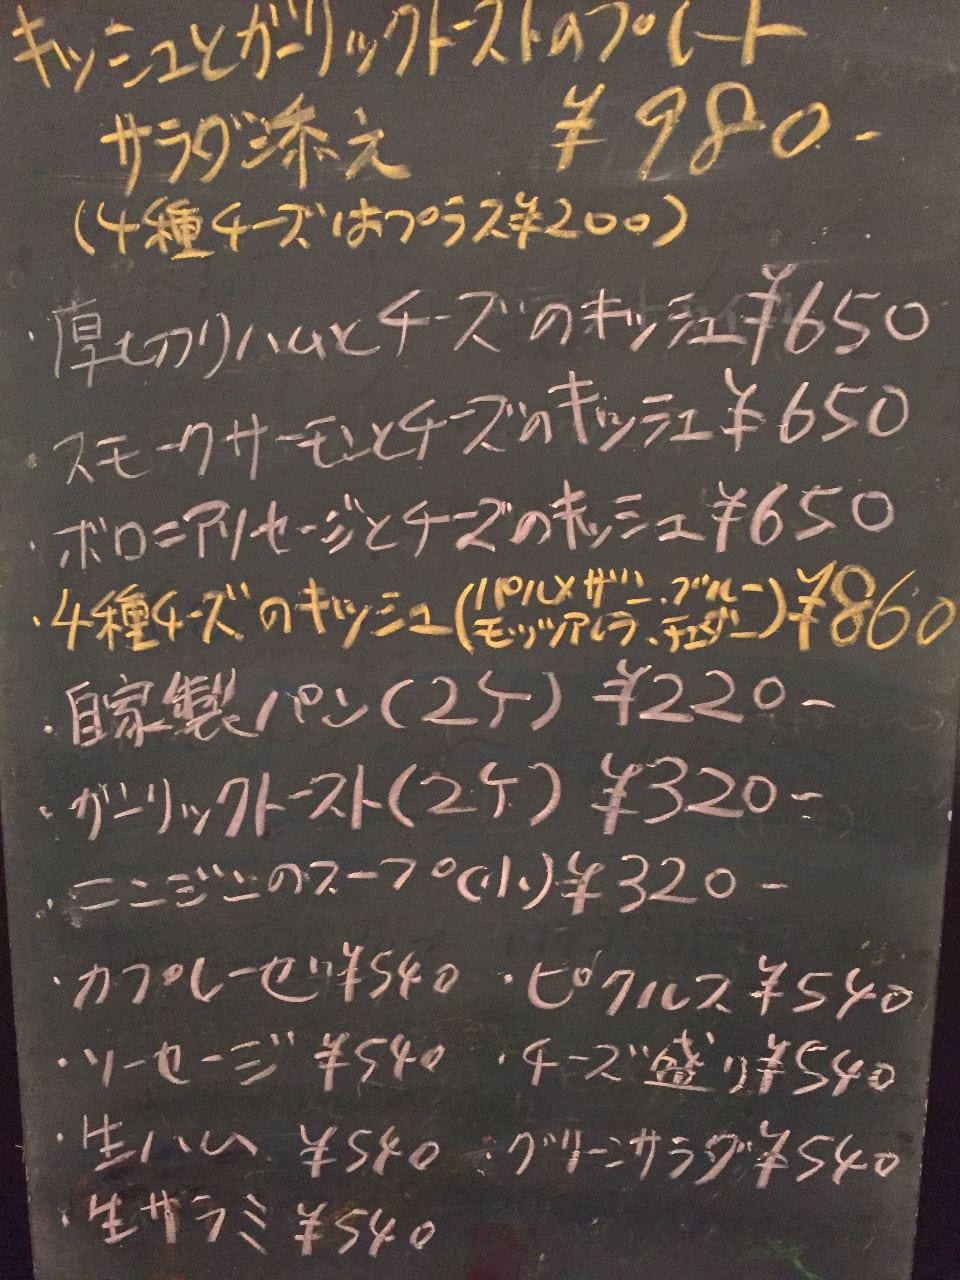 キッシュとガーリックトーストのプレート
サラダ添え ¥980-
(4種チーズはプラス¥200)
・厚切りハムとチーズのキッシュ¥650
・スモークサーモンとチーズのキッシュ¥650
・ボロニアソセージとチーズのキッシュ¥650
・4種チーズのキッシュ(パルメザン、ブルー
モッツアレラ、チェダー)¥860
・自家製パン(2ケ) ¥220-
・ガーリックトースト(2ケ) ¥320-
・ニンジンのスープ(小)¥320-
・カプレーゼ¥540 ・ピクルス¥540
・ソーセージ ¥540 ・チーズ盛り¥540
・生ハム ¥540 ・グリーンサラダ¥540
・生サラミ¥540